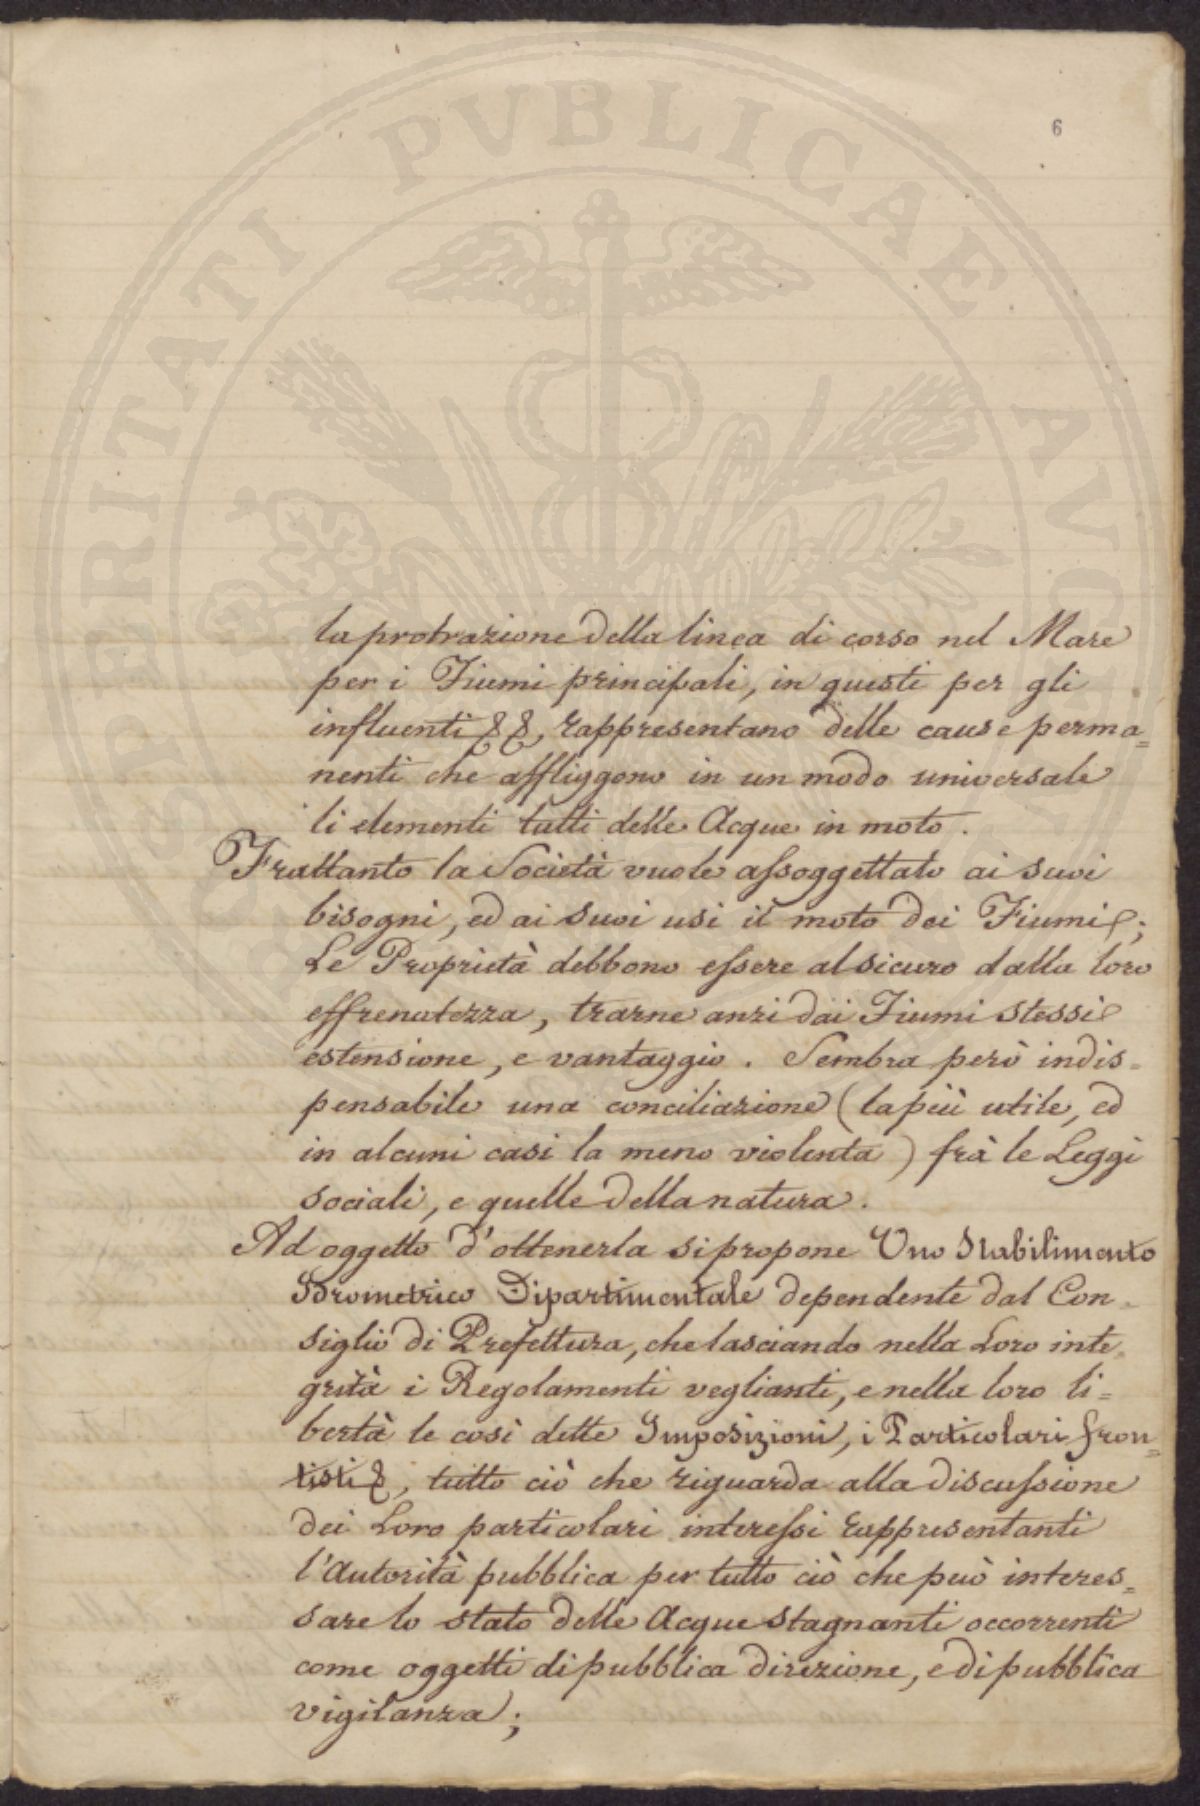 6
PROSPERITATI PVBLICAE AVGENDAE
la protrazione della linea di corso nel Mare
per i Fiumi principali, in questi per gli
influenti &&, rappresentano delle cause perma=
nenti che affliggono in un modo universale
li elementi tutti delle Acque in moto.
Frattanto la Società vuole assoggettato ai suoi
bisogni, ed ai suoi usi il moto dei Fiumi;
Le Proprietà debbono essere al sicuro dalla loro
effrenatezza, trarne anzi dai Fiumi stessi
estensione, e vantaggio. Sembra però indis=
pensabile una conciliazione (la più utile, ed
in alcuni casi la meno violenta) frà le Leggi
sociali, e quelle della natura.
Ad oggetto d'ottenerla si propone Uno Stabilimento
Idrometrico Dipartimentale dependente dal Con=
siglio di Prefettura, che lasciando nella Loro inte=
grità i Regolamenti veglianti, e nella loro li=
bertà le così dette Imposizioni, i Particolari fron=
tisti &, tutto ciò che riguarda alla discussione
dei Loro particolari interessi rappresentanti
l'Autorità pubblica per tutto ciò che può interes=
sare lo stato delle Acque stagnanti occorrenti
come oggetti di pubblica direzione, e di pubblica
vigilanza;